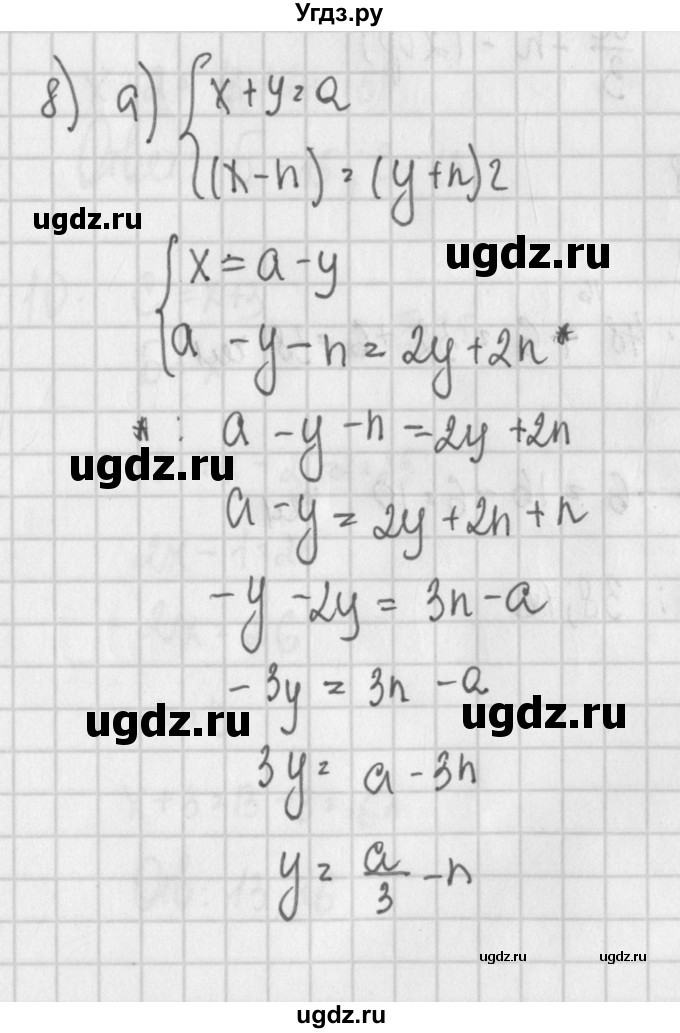 Угдз.ру
8) а) { x + y = a
(x - n) = (y + n) 2
ugdz.ru
ugdz.ru
{ x = a - y
a - y - n = 2y + 2n *
* : a - y - n = 2y + 2n
ugdz.ru
ugdz.ru
a - y = 2y + 2n + n
- y - 2y = 3n - a
- 3y = 3n - a
ugdz.ru
ugdz.ru
3y = a - 3n
y = a/3 - n
ugdz.ru
ugdz.ru
ugdz.ru